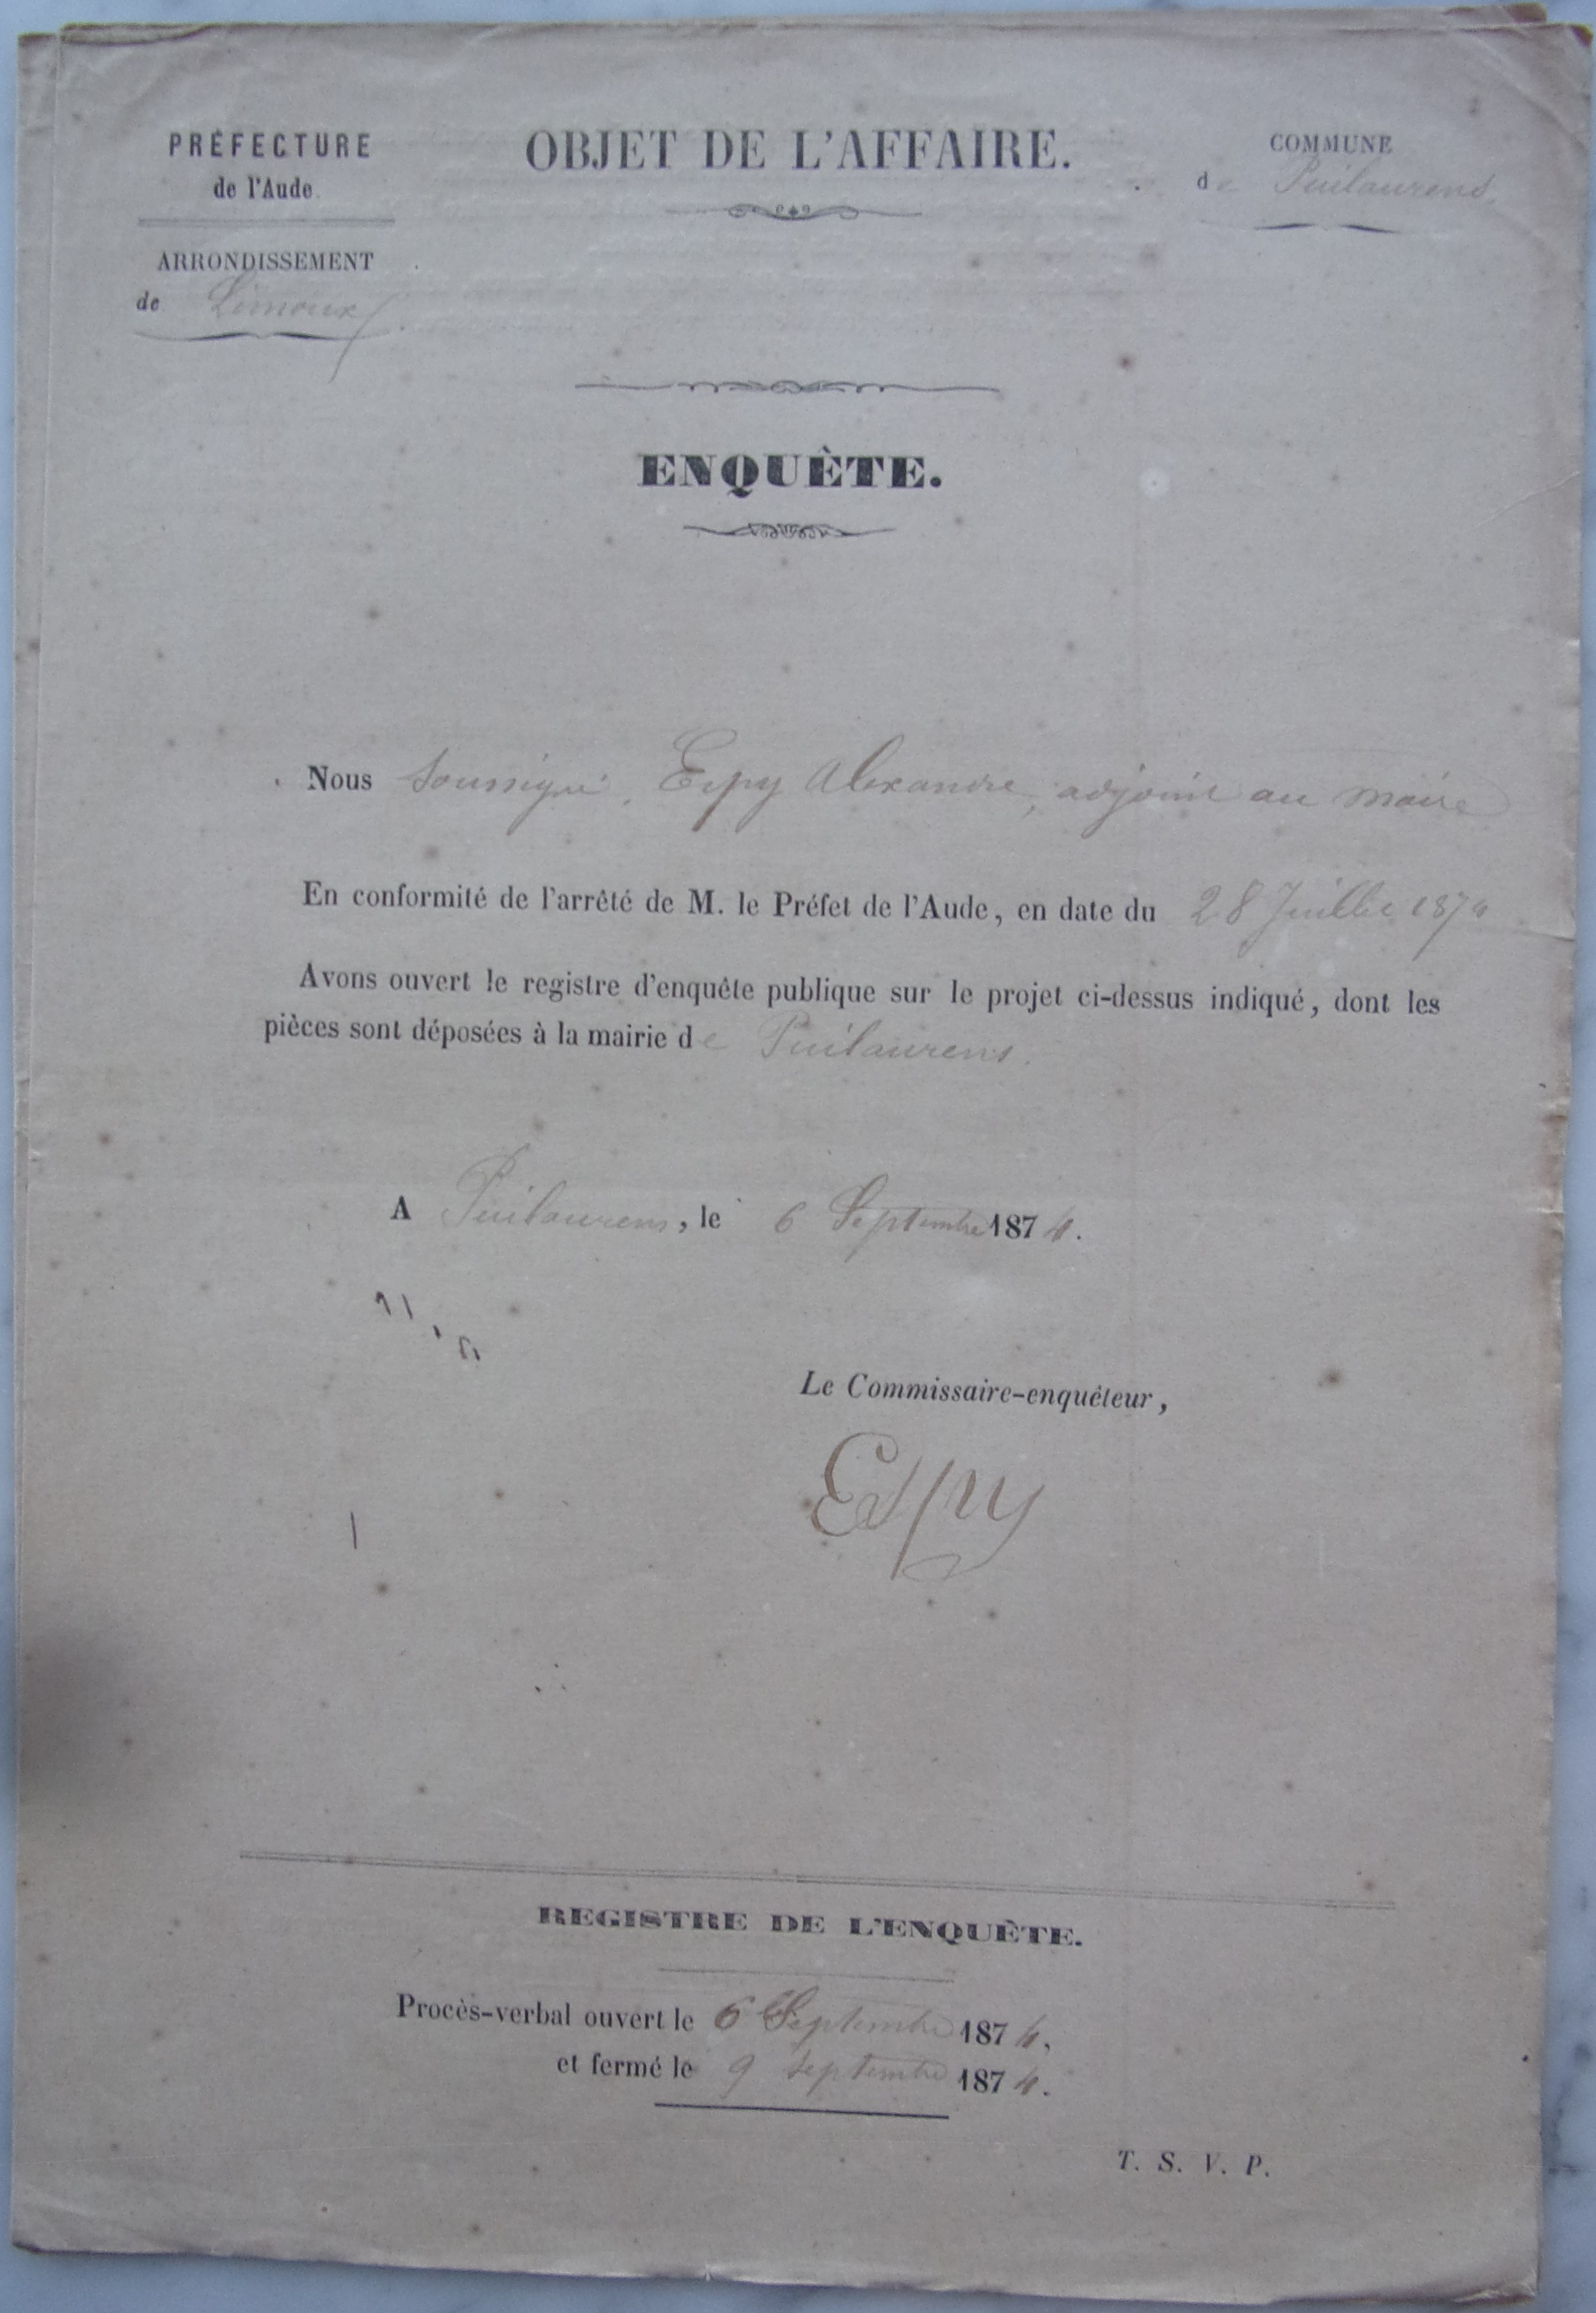 PRÉFECTURE
de l'Aude
OBJET DE L'AFFAIRE.
COMMUNE
de Puilaurens
ARRONDISSEMENT
de Limoux
ENQUÈTE.
Nous soussigné, Espy Alexandre, adjoint au maire
En conformité de l'arrêté de M. le Préfet de l'Aude, en date du 28 Juillet 1874
Avons ouvert le registre d'enquête publique sur le projet ci-dessus indiqué, dont les
pièces sont déposées à la mairie de Puilaurens.
A Puilaurens, le 6 Septembre 1874.
Le Commissaire-enquêteur,
Espy
REGISTRE DE L'ENQUÈTE.
Procès-verbal ouvert le 6 Septembre 1874,
et fermé le 9 septembre 1874.
T. S. V. P.